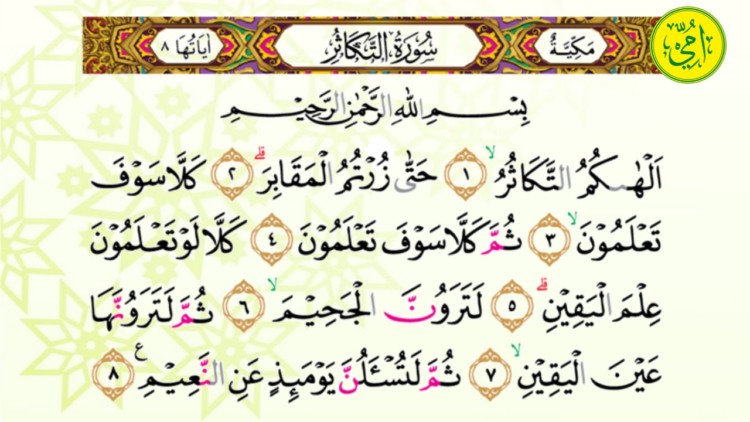 مَكِيَّةٌ سُورَةُ التَّكَاثُرِ اٰيَاتُهَا ٨
اُمِّي
بِسْــمِ اللهِ الرَّحْمٰنِ الرَّحِيْــمِ
اَلْهٰىكُمُ التَّكَاثُرُۙ ١ حَتّٰى زُرْتُمُ الْمَقَابِرَۗ ٢ كَلَّا سَوْفَ
تَعْلَمُوْنَۙ ٣ ثُمَّ كَلَّا سَوْفَ تَعْلَمُوْنَ ٤ كَلَّا لَوْ تَعْلَمُوْنَ
عِلْمَ الْيَقِيْنِۗ ٥ لَتَرَوُنَّ الْجَحِيْمَۙ ٦ ثُمَّ لَتَرَوُنَّهَا
عَيْنَ الْيَقِيْنِۙ ٧ ثُمَّ لَتُسْـَٔلُنَّ يَوْمَىِٕذٍ عَنِ النَّعِيْمِ ع ٨